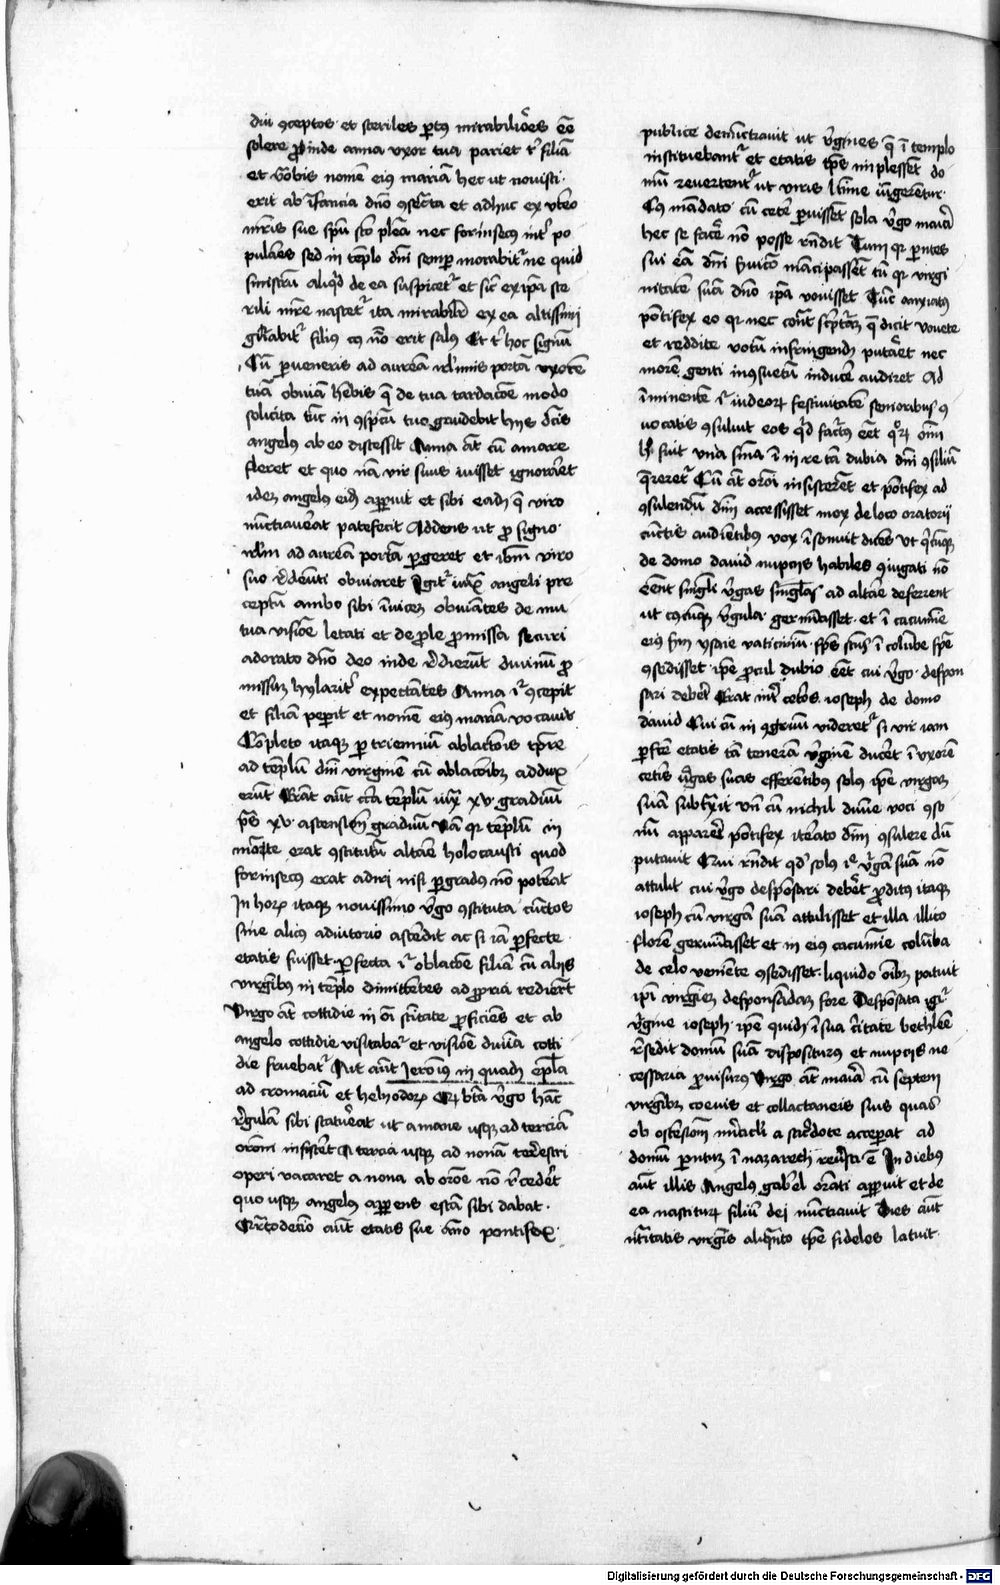 diu ꝯceptos et steriles ꝑtꝰ mirabilio᷒es ēē
solere ꝓinde anna vxor tua pariet tͥ filiā
et vocabis nomē eiꝰ mariā hec ut novisti
erit ab īfancia dn̄o ꝯsecͣta et adhuc ex vtero
mr̄is sue spū sc̄o plēa nec forinsecꝰ int᷒ po
pulares sed in tēplo dn̄i semꝑ morabit᷒ ne quid
sinistrū aliqͥd de ea suspicet᷒ et sic̄ ex ip̄a ste
rili mr̄e nascet᷒ ita mirabilr̄ ex ea altissimi
gn̄abit᷒ filius cꝰ nō erit salus Et tͥ hoc signū
Cū ꝑveneris ad aureā irl̄mis portā vxorē
tuā obviam hēbis q̄ de tua tardacōe modo
solicita tūc in ꝯspcū tuo gaudebit hijs dc̄is
angelus ab eo discessit Anna āt cū amare
fleret et quo nā vir suus ivisset ignoraret
idem angelus eidē apparuit et sibi eadē q̄ viro
nūctiaverat patefecit Addens ut ꝓ signo
irl̄m ad aureā portā ꝑgeret et ibm̄ viro
suo redeūti obviaret Igit᷒ iuxͣ angeli pre
ceptū ambo sibi īvicem obviātes de mu
tua visiōe letati et de ꝓle ꝓmissa securi
adorato dn̄o deo inde redierūt divinū ꝓ
missum hylarit᷒ expectātes Anna ig᷒ ꝯcepit
et filiā peperit et nomē eiꝰ mariā vocavit
Cōpleto itaqꝫ ꝑ trienniū ablactōis tp̄re
ad tēplū dn̄i virginē cū ablacōibꝫ addux
erūt Erāt aūt circa tēplū iuxͣ xv graduū
ps̄ xv ascensionū gradus Nā qꝛ tēplū in
mōte erat ꝯstitutū altare holocausti quod
forinsecꝰ erat adiri nisi ꝑ gradꝰ nō poterat
In horꝫ itaqꝫ novissimo v᷒go ꝯstituta cūctos
sine alicꝰ adiutorio ascēdit ac si iā ꝑfecte
etatis fuisset ꝑfecta ig᷒ oblacōe filiā cū alijs
virgībꝰ in tēplo dimittētes ad ꝓpria redierūt
Virgo āt cottidie in oī sc̄itate ꝓficiēs et ab
angelo cottidie visitabat᷒ et visiōe divīa cotti
die fruebat᷒ Ait aūt Ieroīus in quadā ep̄la
ad cromaciū et heliodorꝫ Qꝫ bt̄a v᷒go hāc
regulā sibi statuerat ut a mane usqꝫ ad terciā
orōni insist᷒et A tercia usqꝫ ad nonā textri
operi vacaret a nona ab orōe nō recederet
quousqꝫ angelus apparens escā sibi dabat
Qͣrtodecīo aūt etatis sue āno pontifex
publice denūctiavit ut v᷒gines q̄ ī templo
instituebant᷒ et etatis tp̄s implessent do
mū revertent᷒ ut viris l̄time iūgerent᷒
Cꝰ mādato cū cetere paruissent sola v᷒go maria
hec se facere nō posse rn̄dit Tum qꝛ parentes
sui eā dn̄i servicio mācipassēt tū qꝛ virgi
nitatē suā dn̄o ip̄a vovisset Tūc anxiatꝰ
pōtifex eo qꝛ nec contra scpturā q̄ dicit vovete
et reddite votū infringendū putaret nec
morē genti insuetū inducere auderet Ad
īminente ig᷒ iudeorꝫ festivitate senioribus ꝯ
vocatis ꝯsuluit eos qͥd factūs eēt qͦrꝫ om̄i
hec fuit una sn̄ia ī in re tā dubia dn̄i ꝯsiliū
quereret᷒ Cū āt orōi insisterēt et pōtifex ad
ꝯsulendū dn̄m accessisset mox de loco oratorij
cūctis audiētibus vox īsonuit dicēs Ut qͥcūqꝫ
de domo david nupcijs habiles ꝯiugati nō
eēnt singl̄i v᷒gas singl̄as ad altare deferrent
ut cꝰcūqꝫ v᷒gula germīasset et ī cacumīe
eiꝰ scd̄m ysaie vaticiniū sp̄s sc̄us ī colūbe sp̄e
ꝯsedisset ip̄e ꝓcul dubio eēt cui v᷒go despon
sari deberet Erat int᷒ ceteros ioseph de domo
david Cui cū in ꝯgruū videret᷒ si vir iam
ꝓfecte etatis tā tenerā v᷒ginē duceret ī vxorē
cetīs v᷒gas suas efferentibus solus ip̄e virgam
suā subtraxit Un̄ cū nichil divīe voci ꝯso
nū appareret pōtifex iterato dn̄m ꝯsulere du
putavit Qui rn̄dit qd̕ solus is v᷒gā suā nō
attulit cui v᷒go desponsari deberet ꝓditus itaqꝫ
ioseph cū virgā suā attulisset et illa illico
florē germinasset et in eiꝰ cacumīe colūba
de celo veniēte ꝯsedisset liquido oībꝫ patuit
ip̄i virginem desponsādam fore Desponsata ig᷒
v᷒gine ioseph ip̄e quidē ī sua civitate bethlēē
recedit domū suā dispositurus et nupcijs ne
cessaria ꝓvisurus Virgo āt maria cū septem
virgībꝫ coevis et collactaneis suis quas
ob ostēsionē miraculi a sacerdote acceperat ad
domū parentum ī nazareth reversa ē In diebus
aūt illis Angelus gabriel orāti apparuit et de
ea nasciturꝫ filiū dei nūctiavit Dies aūt
nativitatis virgīs aliquāto tp̄e fideles latuit
Digitalisierung gefördert durch die Deutsche Forschungsgemeinschaft - DFG